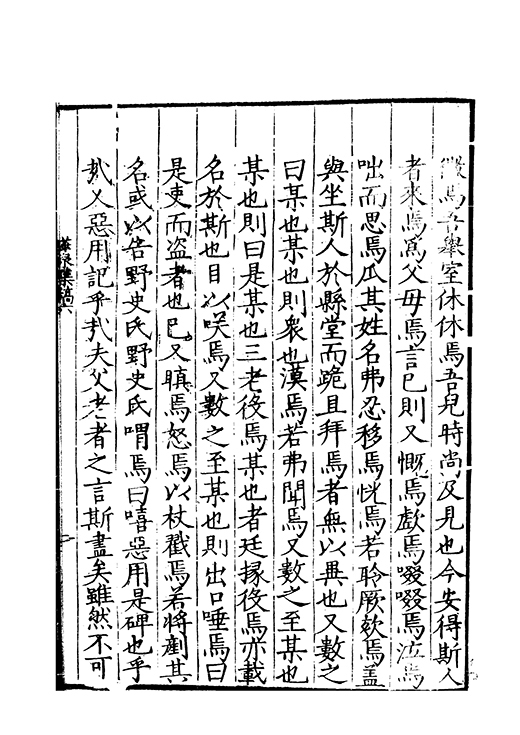 焉吾舉室休休焉吾兒時尚及見也今安得斯人
者來焉爲父母焉言已則又慨焉歔焉啜啜焉泣焉
咄而思焉瓜其姓名弗忍移焉恍焉若聆厥欬焉盖
與坐斯人於縣堂而跪且拜焉者無以異也又數之
曰某也某也則衆也漠焉若弗聞焉又數之至某也
某也則曰是某也三老役焉某也者廷掾役焉亦載
名於斯也目以咲焉又數之至某也則出口唾焉曰
是吏而盗者也已又瞋焉怒焉以杖戳焉若將剷其
名或以告野史氏野史氏喟焉曰嘻惡用是碑也乎
㢤又惡用記乎㢤夫父老者之言斯盡矣雖然不可
集稿六